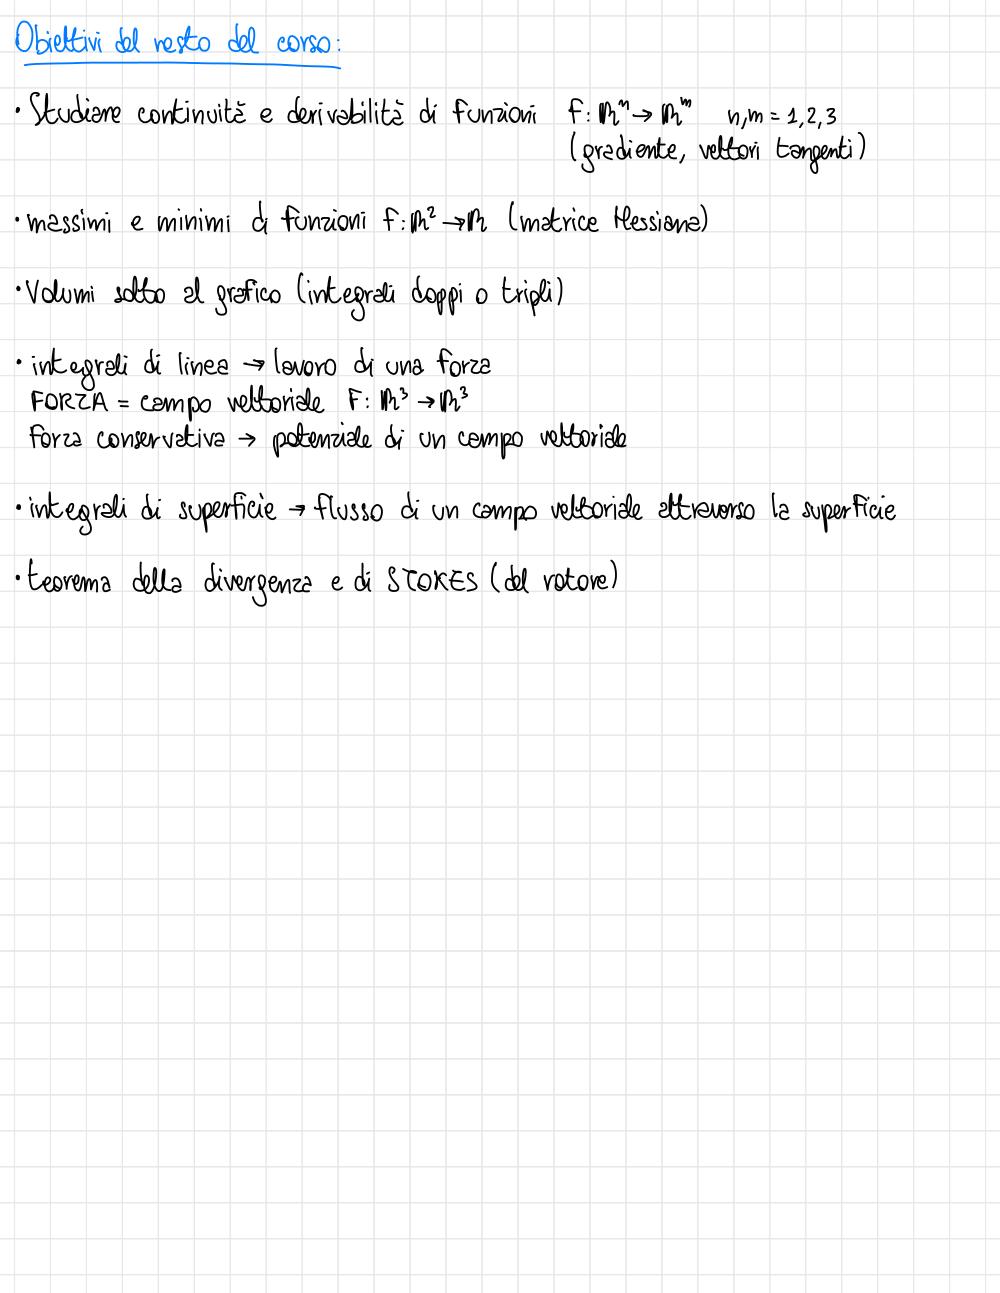 Obiettivi del resto del corso:
• Studiare continuità e derivabilità di funzioni f: ℝⁿ → ℝᵐ n,m = 1,2,3
(gradiente, vettori tangenti)
• massimi e minimi di funzioni f: ℝ² → ℝ (matrice Hessiana)
• Volumi sotto al grafico (integrali doppi o tripli)
• integrali di linea → lavoro di una forza
FORZA = campo vettoriale F: ℝ³ → ℝ³
forza conservativa → potenziale di un campo vettoriale
• integrali di superficie → flusso di un campo vettoriale attraverso la superficie
• teorema della divergenza e di STOKES (del rotore)